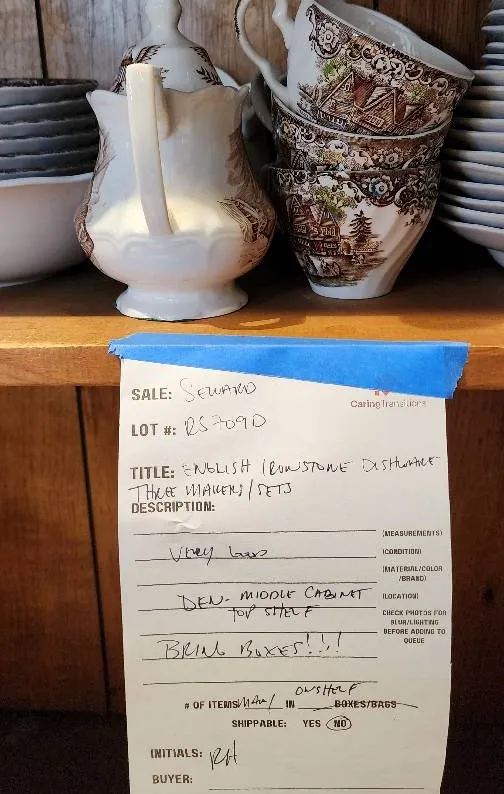 SALE: SEWARD
CaringTransitions
LOT #: RS709D
TITLE: ENGLISH IRONSTONE DISHWARE
THREE MAKERS/SETS
DESCRIPTION:
(MEASUREMENTS)
VERY GOOD (CONDITION)
(MATERIAL/COLOR
/BRAND)
DEN- MIDDLE CABINET (LOCATION)
TOP SHELF
CHECK PHOTOS FOR
BLUR/LIGHTING
BEFORE ADDING TO
QUEUE
BRING BOXES!!!
# OF ITEMS MANY IN ON SHELF BOXES/BAGS
SHIPPABLE: YES NO
INITIALS: RH
BUYER: